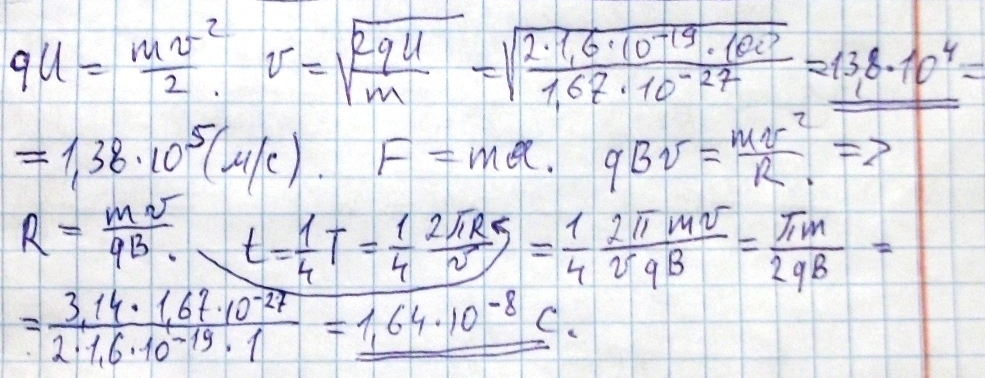 qU = mv²/2. v = √(2qU/m) = √(2·1,6·10⁻¹⁹·100/1,67·10⁻²⁷) = 13,8·10⁴ =
= 1,38·10⁵ (м/с). F = ma. qBv = mv²/R. =>
R = mv/qB. t = 1/4 T = 1/4 2πR/v = 1/4 2π mv/v qB = πm/2qB =
= 3,14·1,67·10⁻²⁷/2·1,6·10⁻¹⁹·1 = 1,64·10⁻⁸ с.